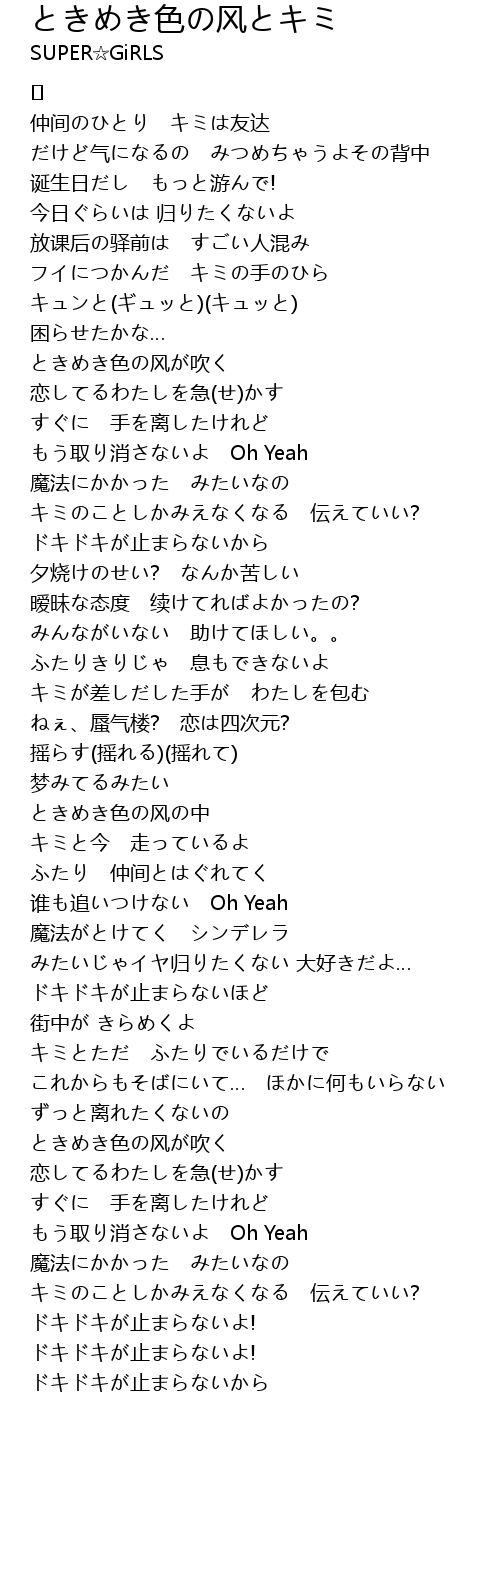 ときめき色の风とキミ
SUPER☆GiRLS
[]
仲间のひとり　キミは友达
だけど气になるの　みつめちゃうよその背中
诞生日だし　もっと游んで!
今日ぐらいは 归りたくないよ
放课后の驿前は　すごい人混み
フイにつかんだ　キミの手のひら
キュンと(ギュッと)(キュッと)
困らせたかな...
ときめき色の风が吹く
恋してるわたしを急(せ)かす
すぐに　手を离したけれど
もう取り消さないよ　Oh Yeah
魔法にかかった　みたいなの
キミのことしかみえなくなる　伝えていい?
ドキドキが止まらないから
夕烧けのせい?　なんか苦しい
暧昧な态度　续けてればよかったの?
みんながいない　助けてほしい。。
ふたりきりじゃ　息もできないよ
キミが差しだした手が　わたしを包む
ねぇ、蜃气楼?　恋は四次元?
揺らす(揺れる)(揺れて)
梦みてるみたい
ときめき色の风の中
キミと今　走っているよ
ふたり　仲间とはぐれてく
谁も追いつけない　Oh Yeah
魔法がとけてく　シンデレラ
みたいじゃイヤ归りたくない 大好きだよ...
ドキドキが止まらないほど
街中が きらめくよ
キミとただ　ふたりでいるだけで
これからもそばにいて...　ほかに何もいらない
ずっと离れたくないの
ときめき色の风が吹く
恋してるわたしを急(せ)かす
すぐに　手を离したけれど
もう取り消さないよ　Oh Yeah
魔法にかかった　みたいなの
キミのことしかみえなくなる　伝えていい?
ドキドキが止まらないよ!
ドキドキが止まらないよ!
ドキドキが止まらないから